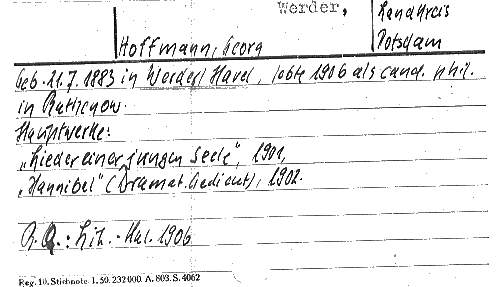 Werder, Landkreis
Potsdam
Hoffmann, Georg
geb. 21.7.1883 in Werder/Havel, lebte 1906 als cand. phil.
in Rathenow.
Hauptwerke:
„Lieder einer jungen Seele", 1901,
„Hannibal" (Dramat. Gedicht), 1902.
R.Q.: Lit.-Kal. 1906
Reg. 10. Stichnote. 1. 50. 232000. A. 803. S. 4062